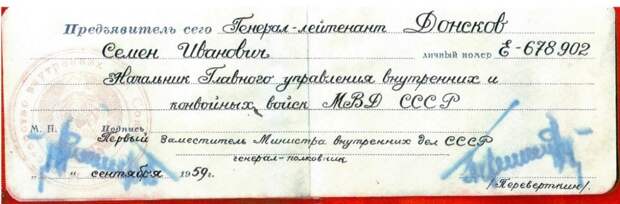 Предъявитель сего Генерал-лейтенант Донсков
Семен Иванович личный номер Е-678902
Начальник Главного управления внутренних и
конвойных войск МВД СССР
М. П. Подпись
Первый Заместитель Министра внутренних дел СССР
генерал-полковник
" " сентября 1959г. /Переверткин/.